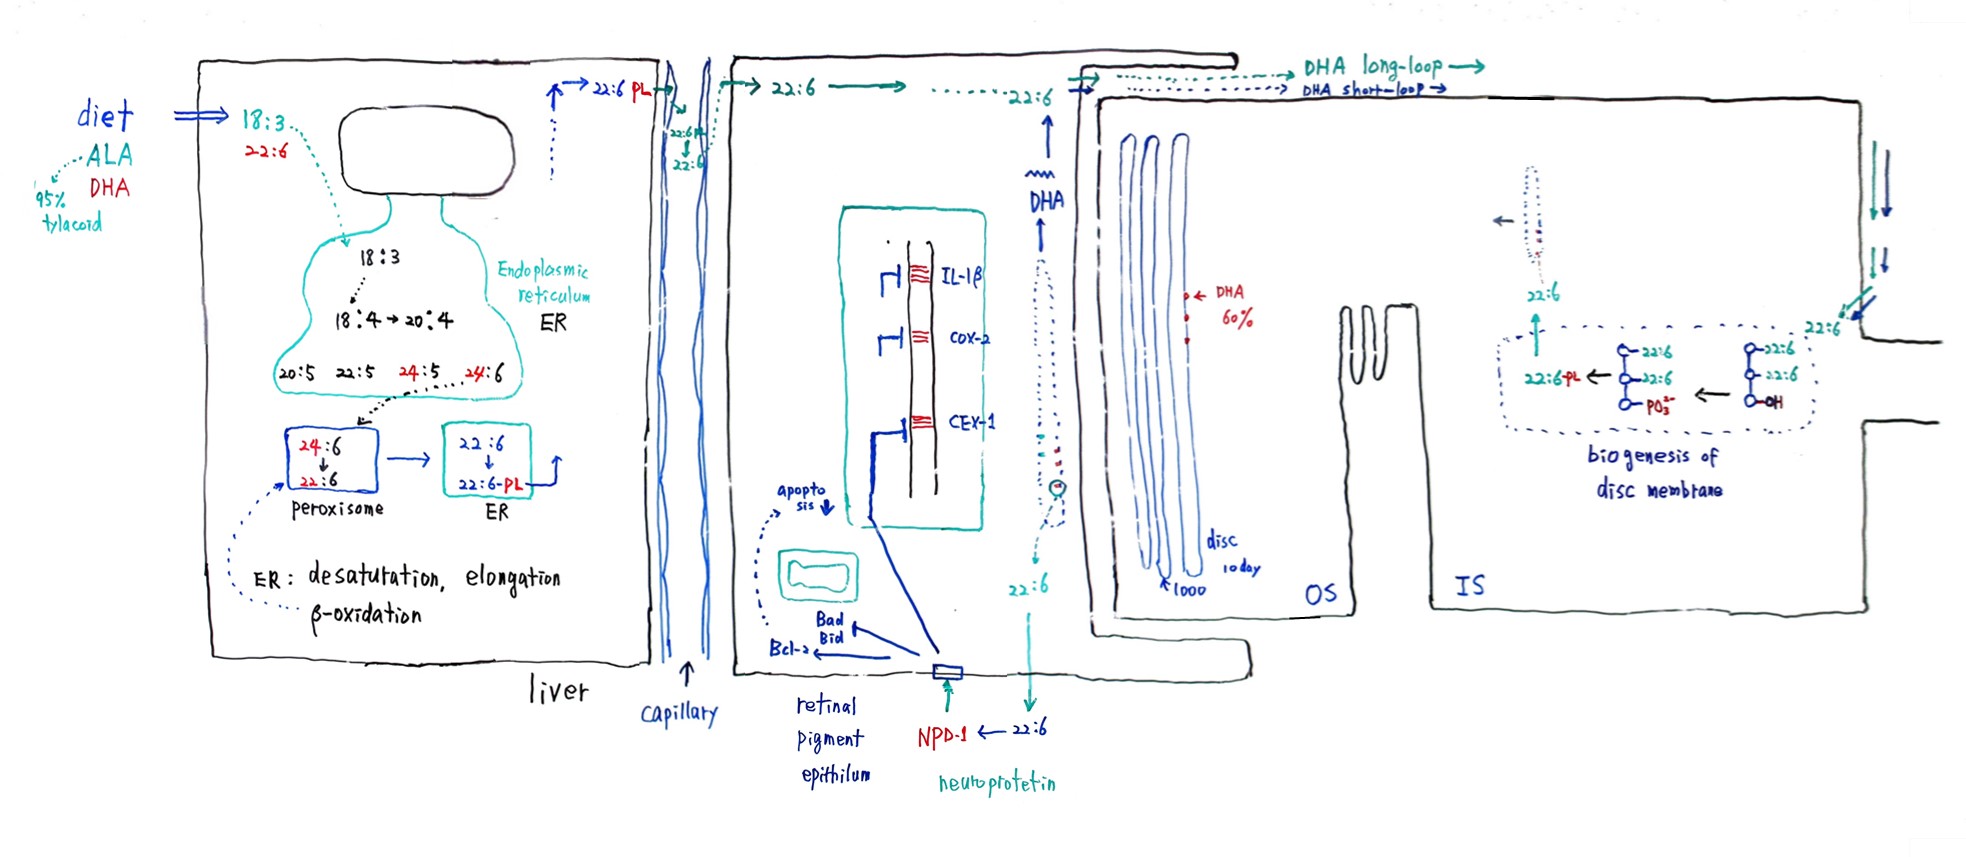 diet
ALA
DHA
95%
tylacoid
18:3
22:6
18:3
18:4 → 20:4
20:5 22:5 24:5 24:6
Endoplasmic
reticulum
ER
24:6
↓
22:6
peroxisome
22:6
↓
22:6-PL
ER
ER: desaturation, elongation
β-oxidation
liver
22:6 PL
22:6 PL
↓
22:6
capillary
22:6
22:6
DHA
IL-1β
COX-2
CEX-1
apopto
sis
Bad
Bid
Bcl-2
22:6
retinal
pigment
epithilum
NPD-1 ← 22:6
neuroprotetin
DHA long-loop →
DHA short-loop →
DHA
60%
disc
10day
1000
OS
IS
22:6
22:6
22:6-PL
22:6
22:6
PO3²⁻
22:6
22:6
OH
biogenesis of
disc membrane